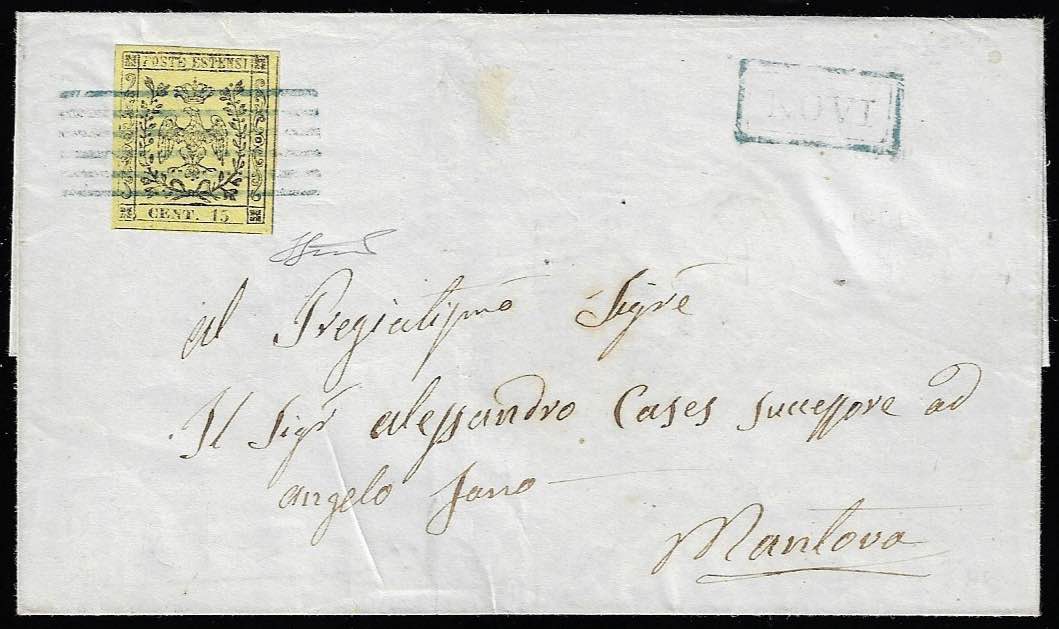 POSTE ESTENSI
CENT. 15
NOVI
Al Pregiatissmo Sigre
Il Sigr Alessandro Cases successore ad
Angelo
Mantova